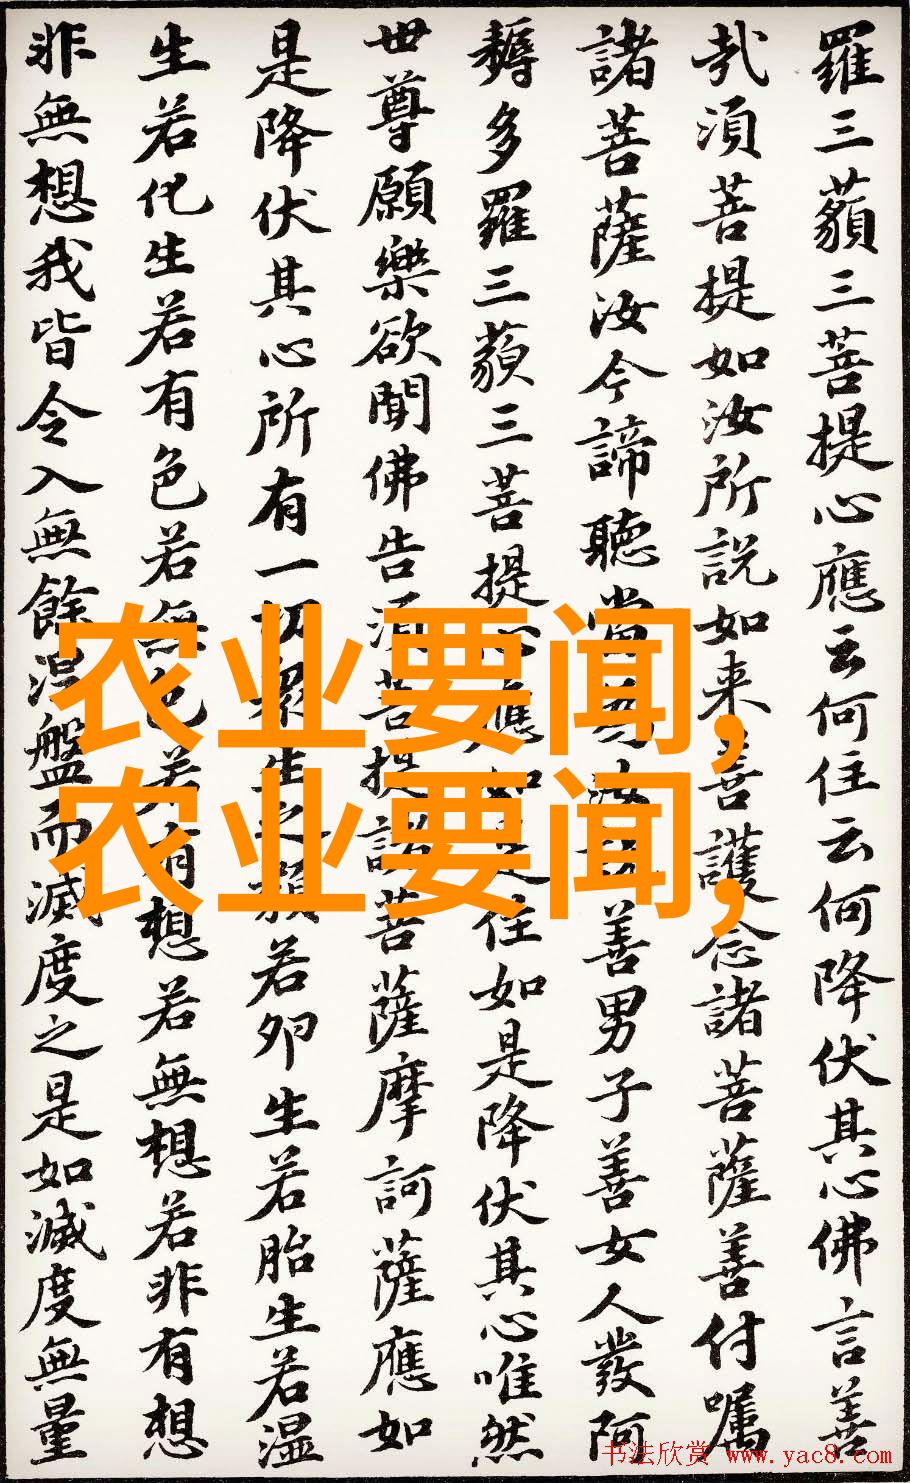 羅三藐三菩提心應云何住云何降伏其心佛言善
哉須菩提如汝所說如来善護念諸菩薩善付嘱
諸菩薩汝今諦聽當為汝說善男子善女人發阿
耨多羅三藐三菩提心應如是住如是降伏其心唯然
世尊願樂欲聞佛告須菩提諸菩薩摩訶薩應如
是降伏其心所有一切眾生之類若卵生若胎生若湿
生若化生若有色若無色若有想若無想若非有想
非無想我皆令入無餘涅盤而滅度之是如滅度無量
农业要闻,
农业要闻,
书法欣赏 www.yac8.com